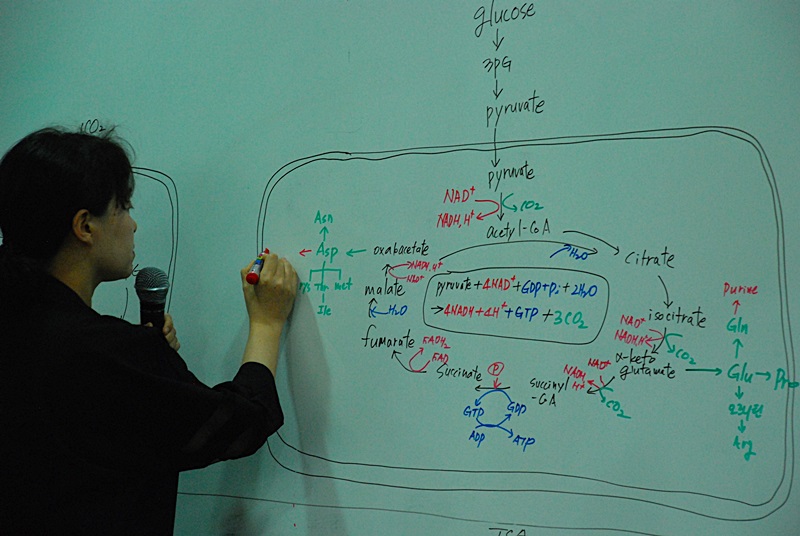 glucose
3PG
pyruvate
CO₂
pyruvate
NAD⁺
NADH, H⁺
CO₂
acetyl-CoA
H₂O
Citrate
isocitrate
NAD⁺
NADH, H⁺
CO₂
α-keto
glutamate
NAD⁺
NADH
H⁺
CO₂
succinyl
-CoA
P
GTP
GDP
ADP
ATP
Succinate
FADH₂
FAD
fumarate
H₂O
malate
NADH, H⁺
NAD⁺
oxaloacetate
Asn
Asp
Thr Met
Ile
pyruvate + 4NAD⁺ + GDP + Pi + 2H₂O
→ 4NADH + 4H⁺ + GTP + 3CO₂
Purine
Gln
Glu
Pro
오르니틴
Arg
TCA